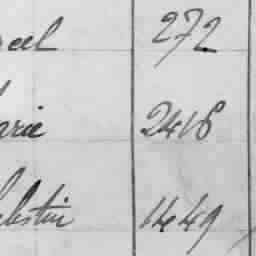 rcel 272
arie 2418
lestin 1449